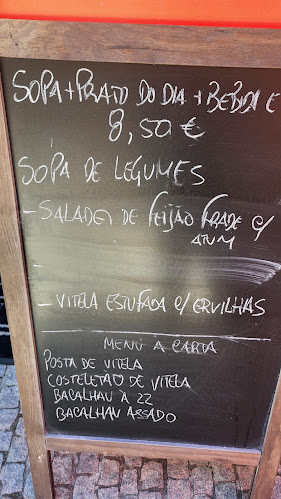 SOPA + PRATO DO DIA + BEBIDA E
8,50 €
SOPA DE LEGUMES
- SALADA DE FEIJÃO FRADE C/
ATUM
-
- VITELA ESTUFADA C/ ERVILHAS
MENU À CARTA
POSTA DE VITELA
COSTELETÃO DE VITELA
BACALHAU À ZZ
BACALHAU ASSADO